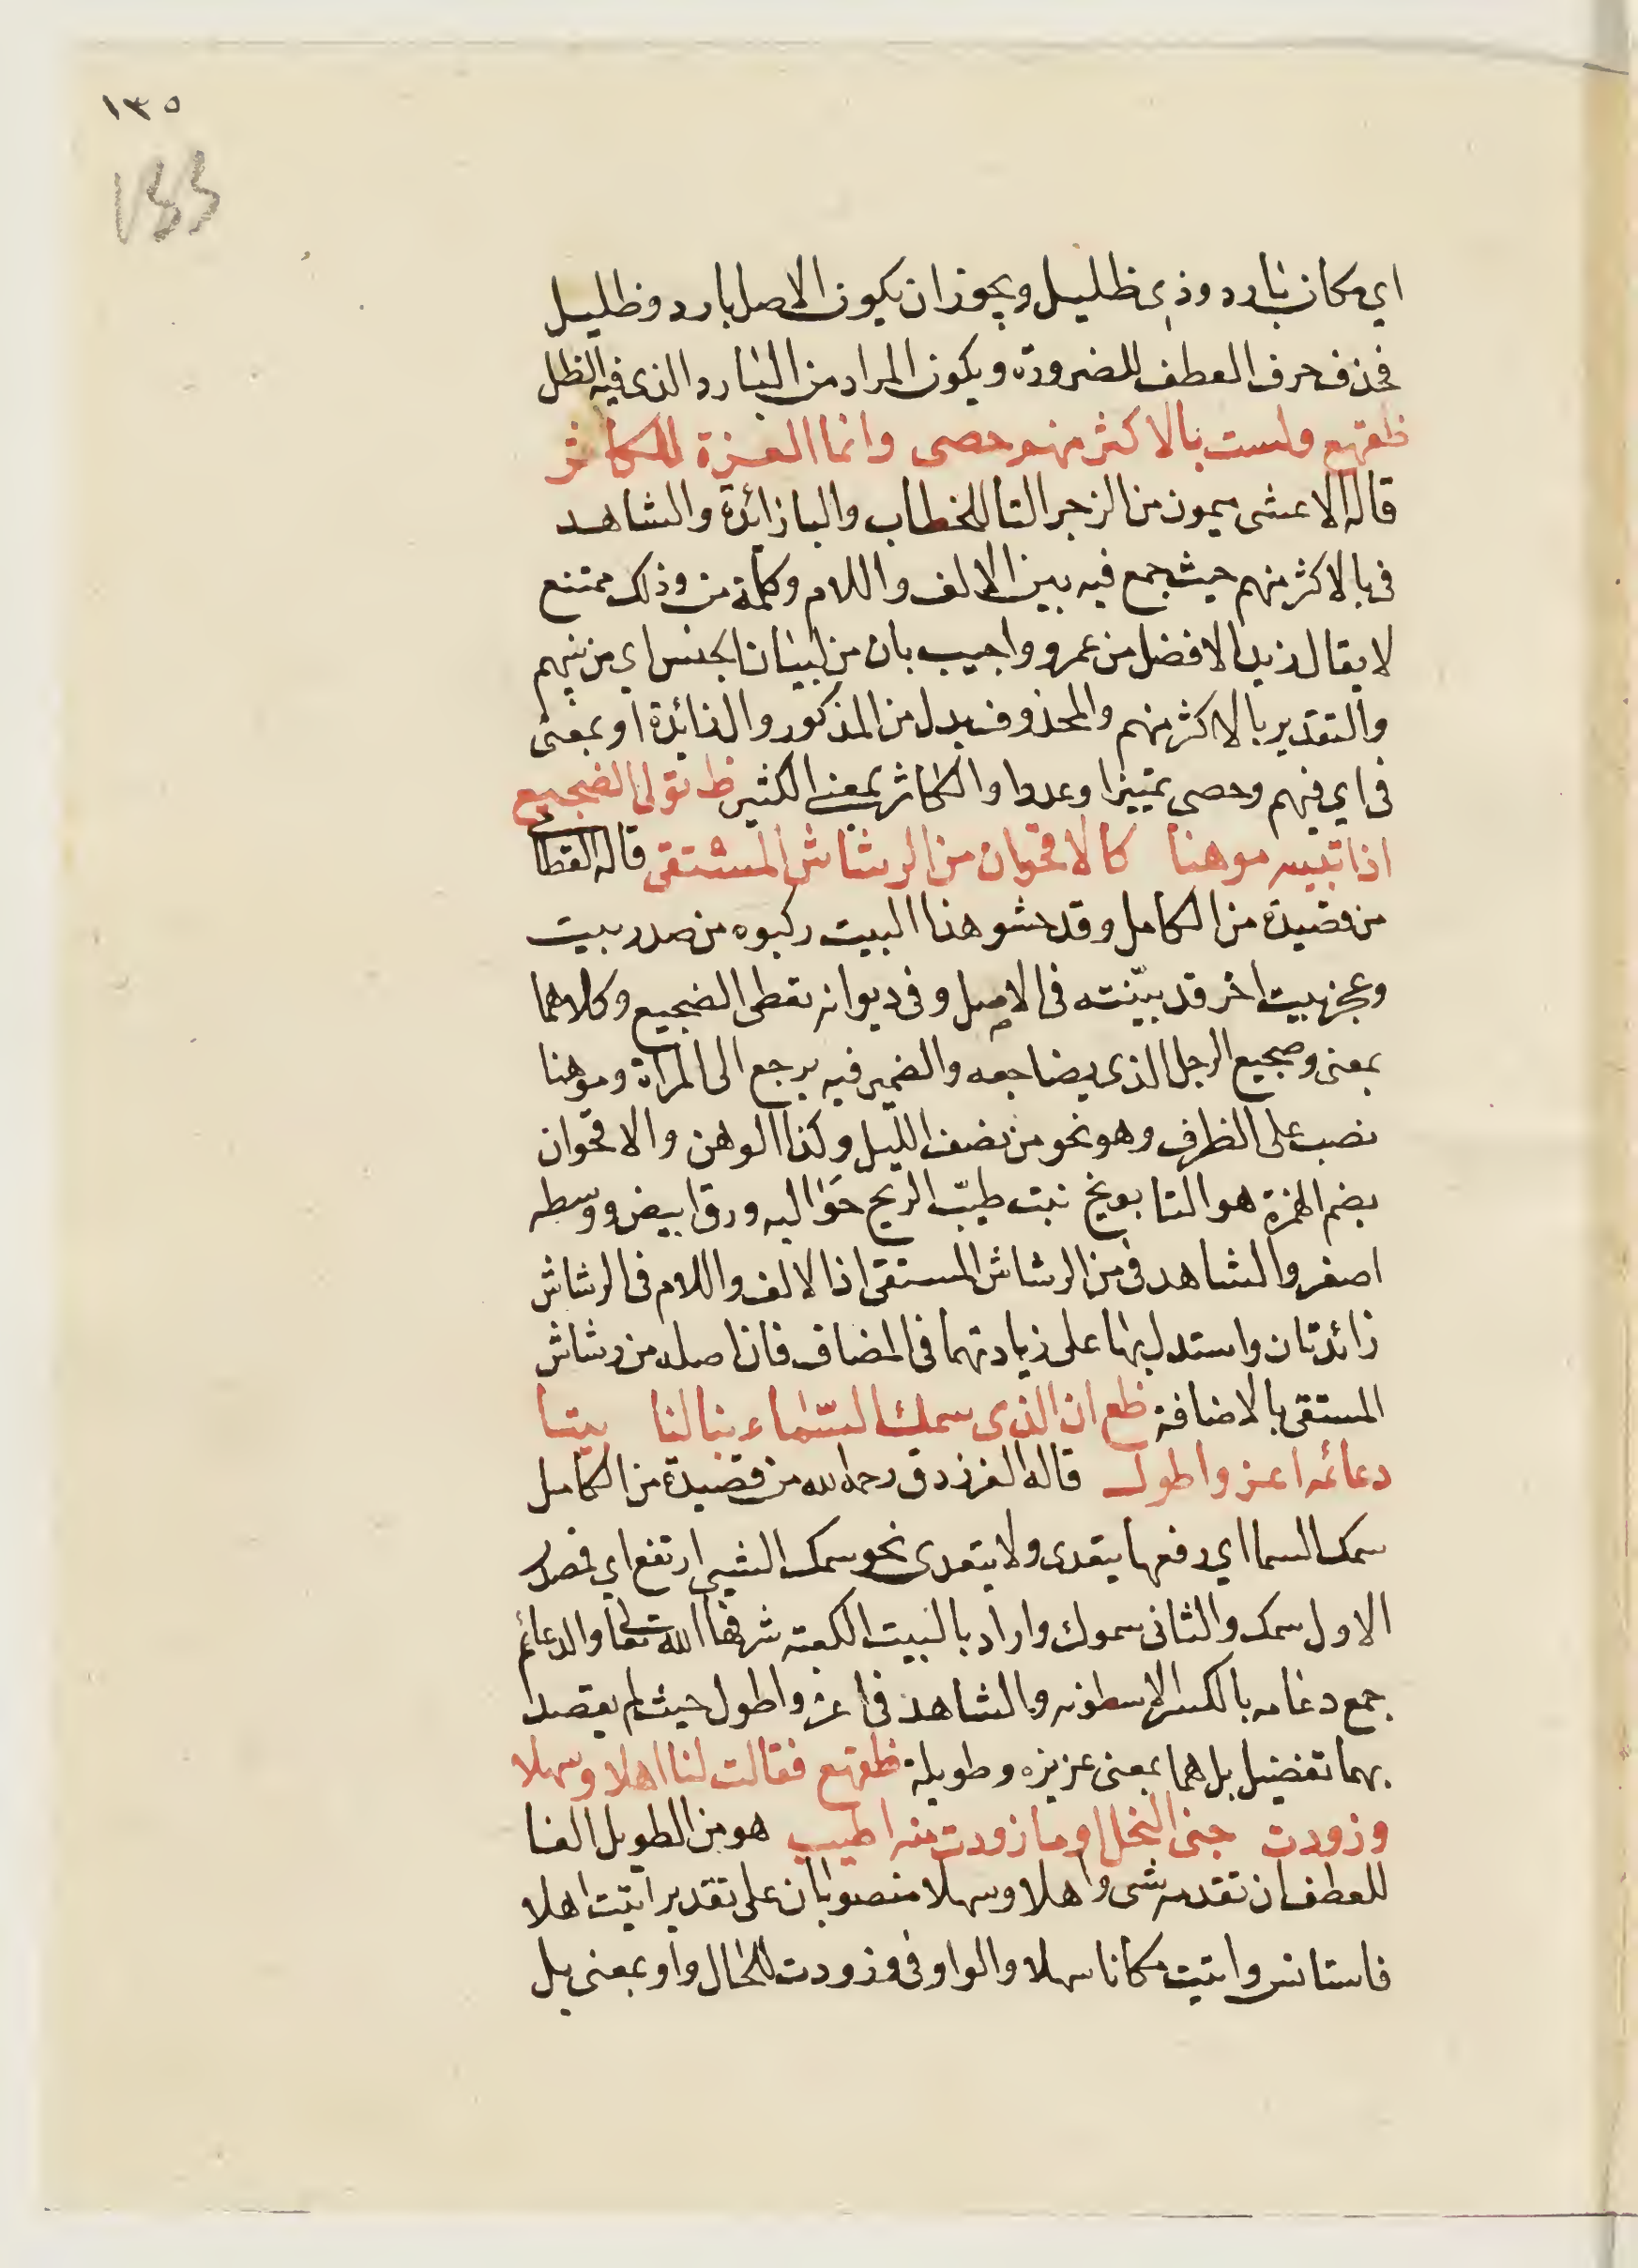 ١٣٥
133
اي مكان بارد وذي ظليل ويجوز ان يكون الاصل بارد وظليل
فحذف حرف العطف للضرورة ويكون المراد من البارد الذي فيه الظل
ظقهع ولست بالاكثر منهم حصى وانما العزة للكاثر
قاله الاعشى ميمون من الرجز التا للخطاب والبا زائدة والشاهد
في بالاكثر منهم حيث جمع فيه بين الالف واللام وكلمة من وذلك ممتنع
لا يقال زيد الافضل من عمرو واجيب بان من لبيان الجنس اي من بينهم
والتقدير بالاكثر منهم والمحذوف بدل من المذكور والزائدة او بمعنى
في اي فيهم وحصى تمييزا وعددا والكاثر بمعنى الكثير ظ تولي الضجيع
اذا تنبه موهنا كالاقحوان من الرشاش المستقي قاله القطا
من قصيدة من الكامل وقد حشو هذا البيت ركبوه من صدر بيت
وعجز بيت اخر قد بيّنته في الاصل وفي ديوانه تعطي الضجيع وكلاهما
بمعنى وضجيع الرجل الذي يضاجعه والضمير فيه يرجع الى المراة وموهنا
نصب على الظرف وهو نحو من نصف الليل وكذا الوهن والاقحوان
بضم الهمزة هو البابونج نبت طيّب الريح حواليه ورق ابيض ووسطه
اصفر والشاهد في من الرشاش المستقي اذ الالف واللام في الرشاش
زائدتان واستدل بها على زيادتهما في المضاف فان اصله من رشاش
المستقي بالاضافة ظع ان الذي سمك السّماء بنا لنا بيتا
دعائمه اعز واطول قاله الفرزدق رحمه الله من قصيدة من الكامل
سمك السما اي رفعها يتعدى ولا يتعدى نحو سمك الشيي ارتفع اي فمصدر
الاول سمك والثاني سموك واراد بالبيت الكعبة شرفها الله تعالى والدعائم
جمع دعامه بالكسر الاسطونه والشاهد في اعز واطول حيث لم يقصد
بهما تفضيل بل هما بمعنى عزيزه وطويلة ظقهع فقالت لنا اهلا وسهلا
وزودت جنى النخل او ما زودت منه اطيب هو من الطويل الفا
للعطف ان تقدمه شى واهلا وسهلا منصوبان على تقدير اتيت اهلا
فاستانس واتيت مكانا سهلا والواو في وزودت للحال واو بمعنى بل